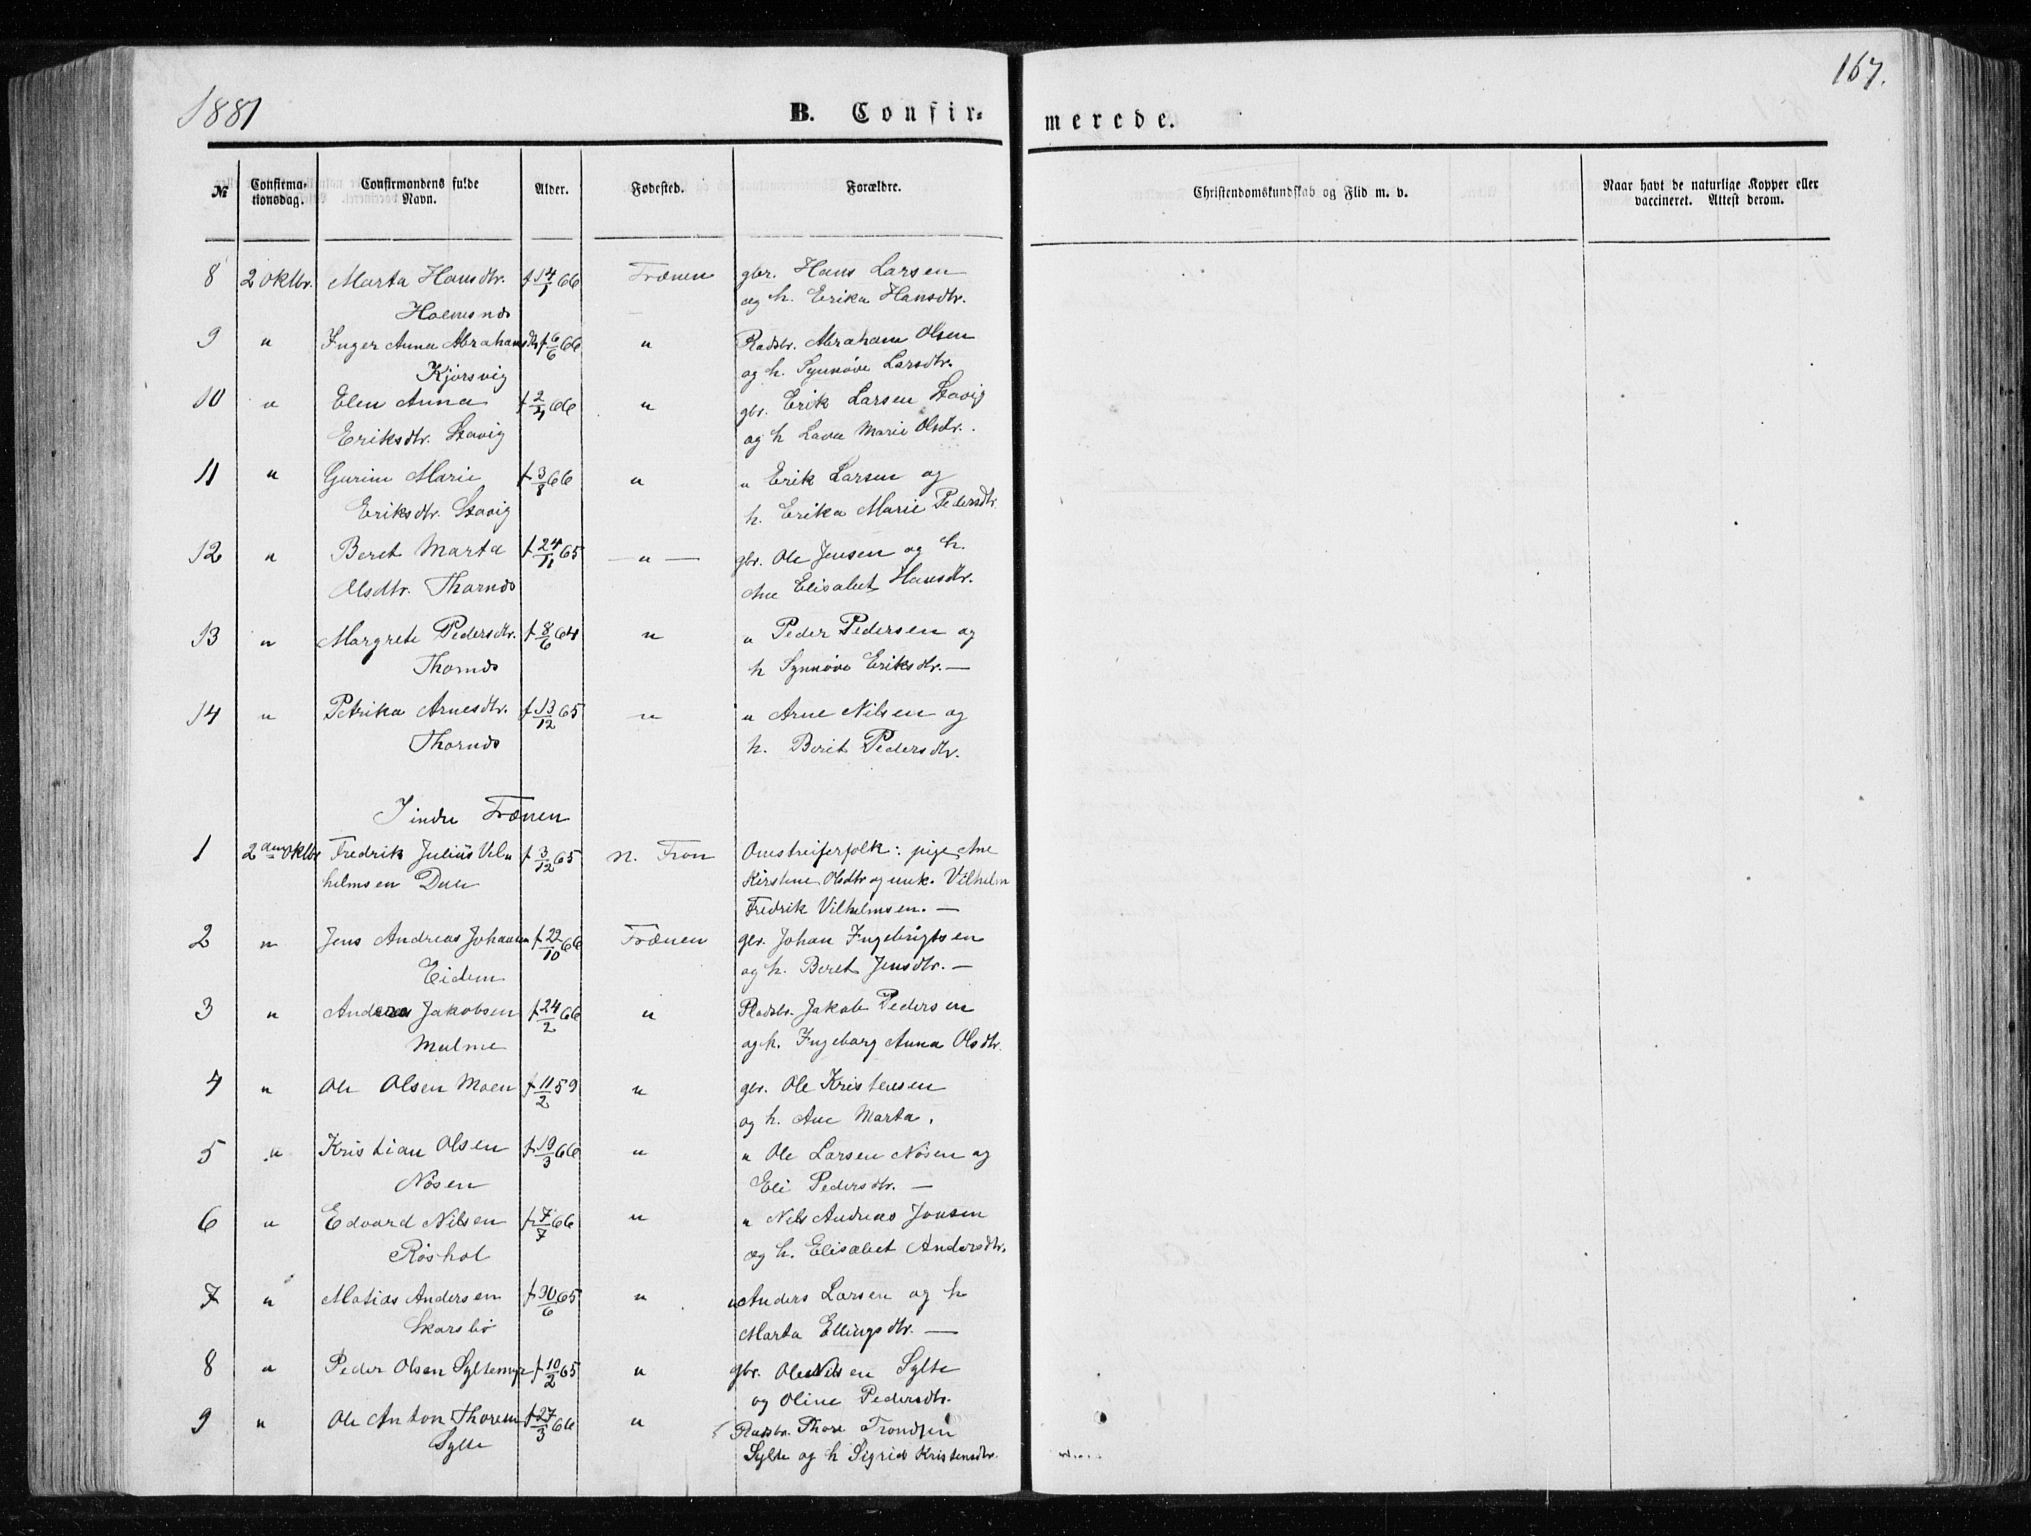 1881
B. Confir-
merede.
167.
№ Confirma-tionsdag. Confirmandens fulde Navn. Alder. Fødested. Forældre.
Christendomskundskab og Flid m. v.
Naar havt de naturlige Kopper eller vaccineret. Attest derom.
8 2 oktbr. Marta Hansdtr. f 14/1 66 Frænen gbr. Hans Larsen
Holmsnds og h. Erika Hansdtr.
9 " Inger Anna Abrahamsdtr f 6/6 66 " Pladsbr. Abraham Olsen
Kjørsvig og h. Synnøve Larsdtr.
10 " Elen Anna f 2/4 66 " gbr. Erik Larsen Stavig
Eriksdtr. Stavig og h Lava Marie Olsdtr.
11 " Gurine Marie f 3/8 66 " " Erik Larsen og
Eriksdtr. Stavig h. Erika Marie Pedersdtr.
12 " Beret Marta f 24/11 65 — " — gbr. Ole Jensen og h.
Olsdtr. Thornds Ane Elisabet Hansdtr.
13 " Margrete Pedersdtr. f 8/6 64 " " Peder Pedersen og
Thornds h Synnøve Eriksdtr. —
14 " Petrika Arnesdtr. f 13/12 65 " " Arne Nilsen og
Thornds h. Beret Pedersdtr.
Indre Frænen
1 2den oktbr Fredrik Julius Vil= f 3/12 65 N. Fron Omstreiferfolk: pige Ane
helmsen Kirstine Olsdtr og unk. Vilhelm
Fredrik Vilhelmsen. —
2 " Jens Andreas Johansen f 22/10 66 Frænen gbr. Johan Ingebrigtsen
Eidem og h. Beret Jensdtr. —
3 " Andreas Jakobsen f 24/2 66 " Pladsbr. Jakob Pedersen
Malme og h. Ingeborg Anna Olsdtr.
4 " Ole Olsen Moen f 11/2 59 " gbr. Ole Kristensen
og h. Ane Marta.
5 " Kristian Olsen f 19/3 66 " " Ole Larsen Nøsen og
Nøsen Eli Pedersdtr. —
6 " Edvard Nilsen f 7/7 66 " " Nils Andreas Jonsen
Røshol og h. Elisabet Andersdtr.
7 " Matias Andersen f 30/6 65 " " Anders Larsen og h
Skarsbø Marta Ellingsdtr. —
8 " Peder Olsen Syltemyr f 10/2 65 " gbr. Ole Nilsen Sylte
og Oline Pedersdtr.
9 " Ole Anton Thoresen f 27/3 66 " Pladsbr. Thore Trondsen
Sylte Sylte og h Sigrid Kristensdtr.